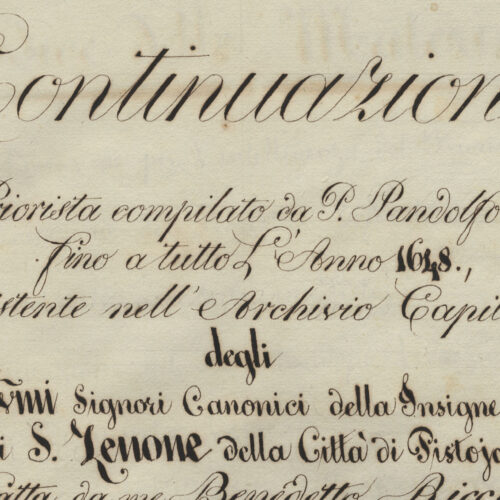 Continuazion
Priorista compilato da P. Pandolfo
fino a tutto L'Anno 1648.,
istente nell'Archivio Capit
degli
Signori Canonici della Insigne
i S. Zenone della Città di Pistoja
atta da me Benedetto Ricc